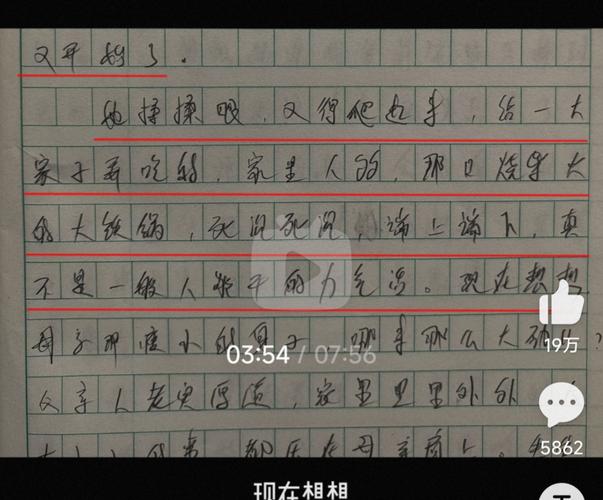 又开始了。
她揉揉眼，又得爬起来，给一大
家子弄吃的，家里人多，那口烧柴火
的大铁锅，死沉死沉，端上端下，真
不是一般人能干的力气活。现在想想
母亲那瘦小的身子，哪来那么大劲儿？
父亲人老实厚道，家里里里外外
都压在母亲肩上。
19万
03:54 / 07:56
5862
现在想想